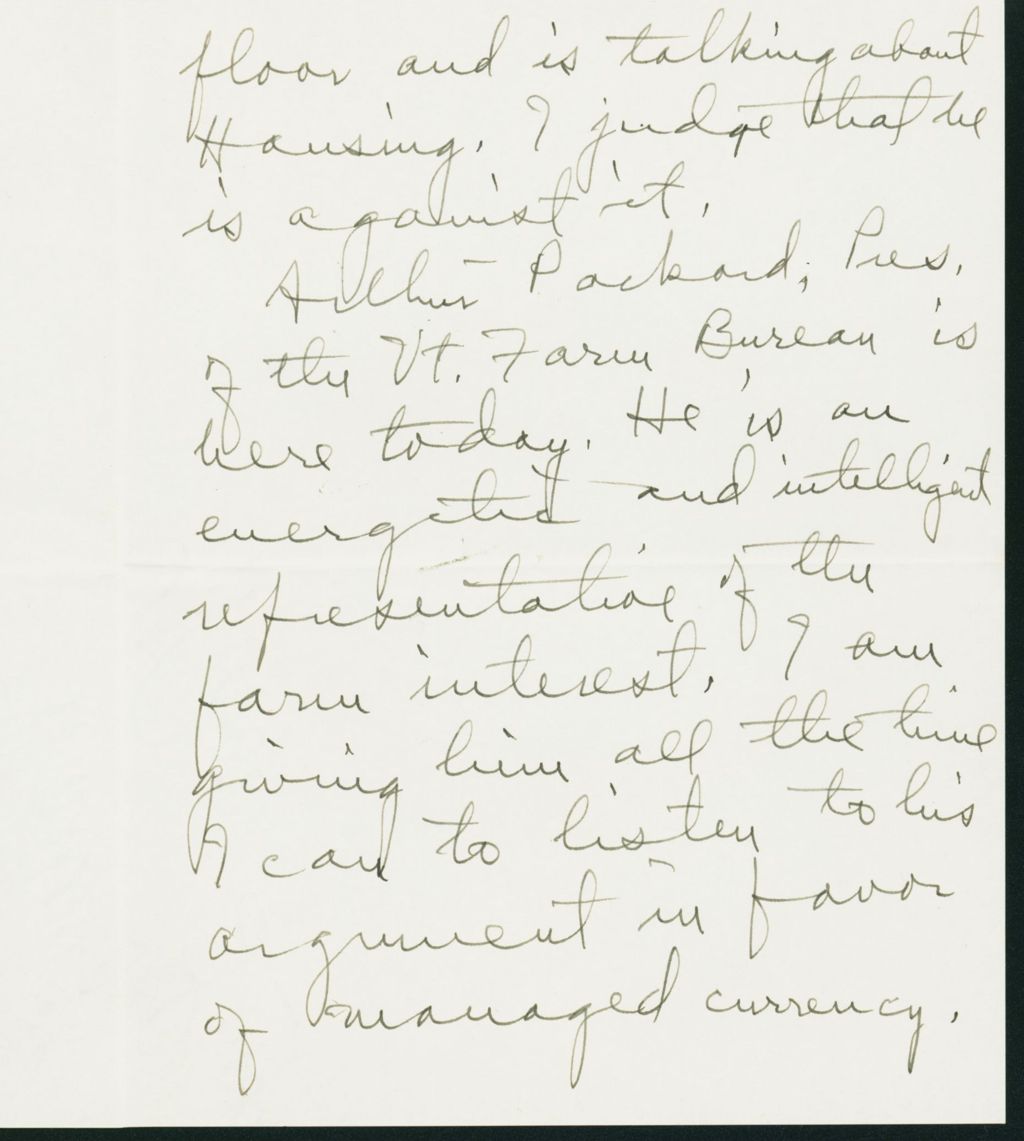 floor and is talking about
Housing. I judge that he
is against it.
Arthur Packard, Pres.
of the Vt. Farm Bureau is
here today. He is an
energetic and intelligent
representative of the
farm interest. I am
giving him all the time
I can to listen to his
argument in favor
of managed currency.